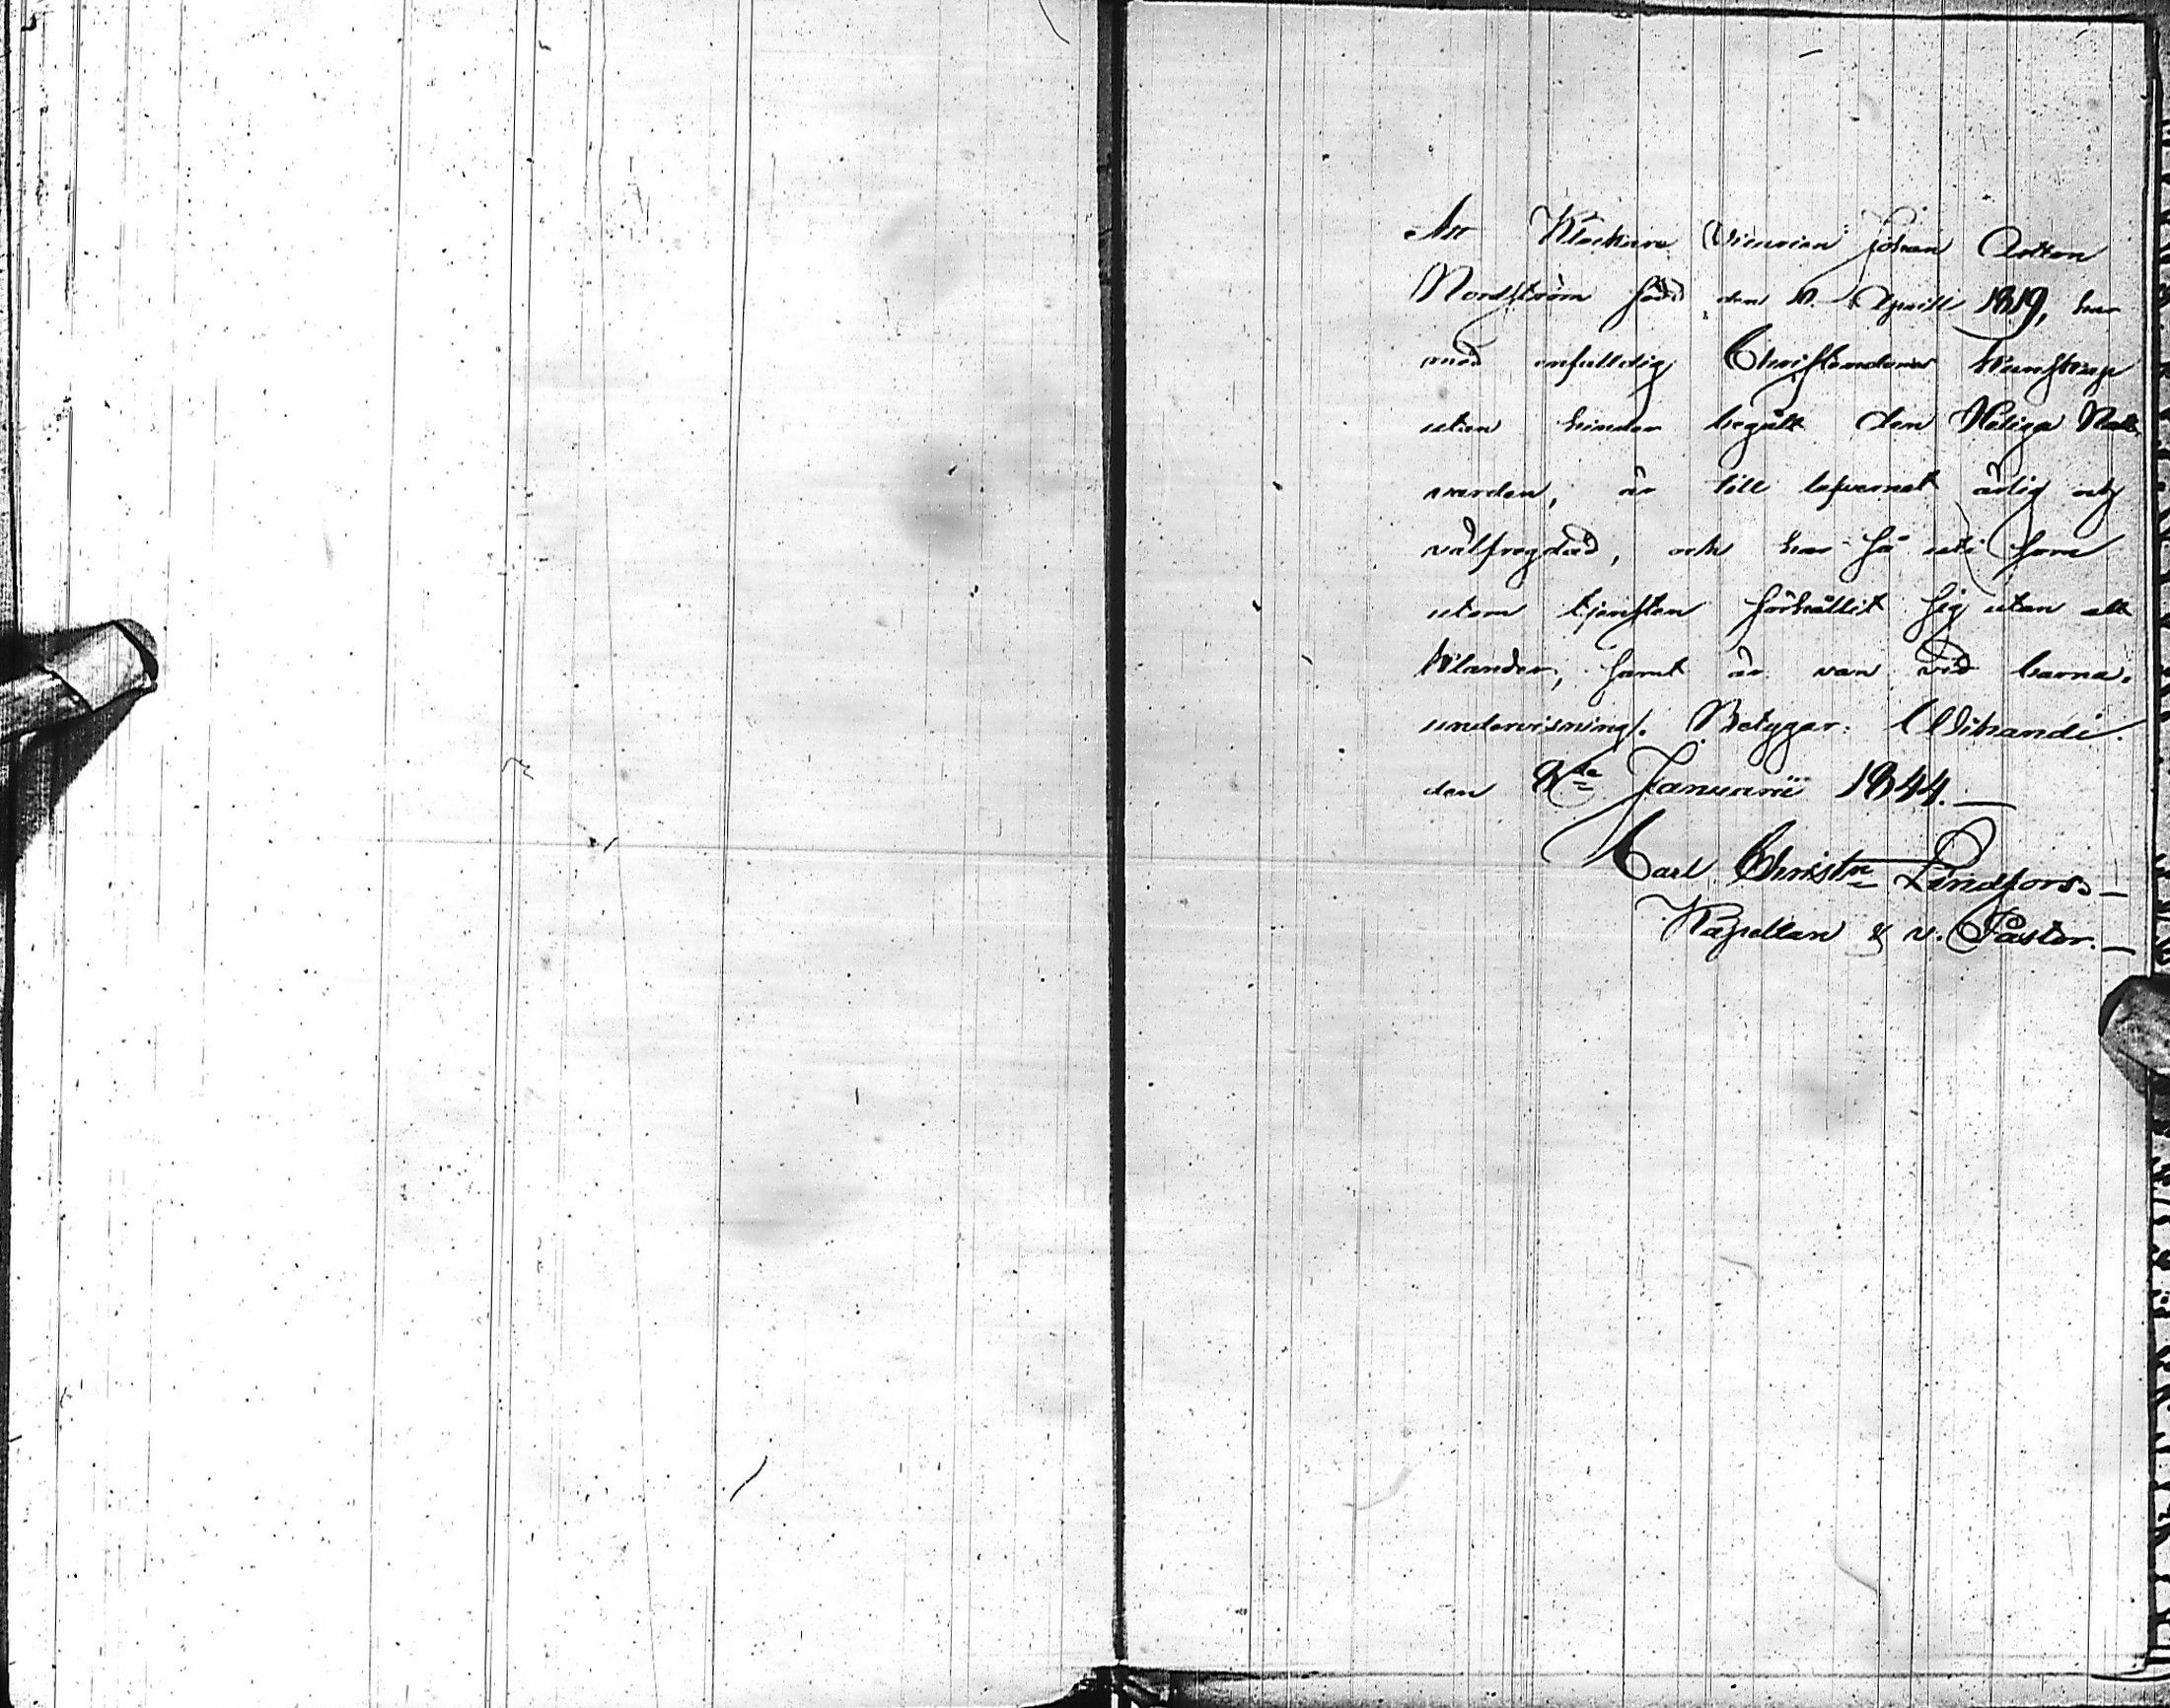 Att Klockare Vicarien Johan Anton
Nordström född den Aprill 1819, har
med enfalldig Christendoms kunskap
utan hinder begått den Heliga Natt-
varden, är till lefvernet ärlig och
välfregdad, och har så uti som
utom tjensten förhållit sig utan allt
klander, samt är van vid barna-
undervisning. Betygar: Wihandi.
den 8de Januarii 1844.—
Carl Christn Lindfors.—
Kapellan & v. Pastor.—